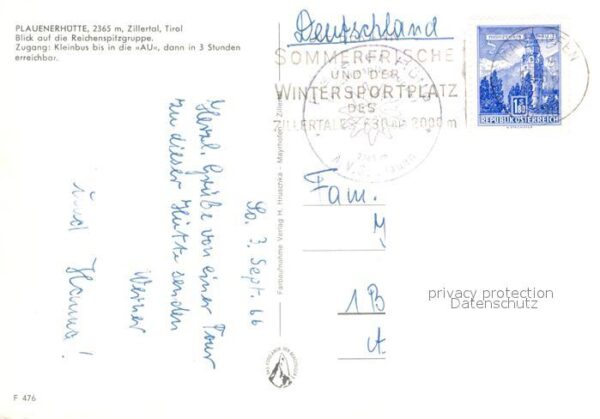 PLAUENERHÜTTE, 2365 m, Zillertal, Tirol
Blick auf die Reichenspitzgruppe.
Zugang: Kleinbus bis in die »AU«, dann in 3 Stunden
erreichbar.
Sa 3. Sept. 66
Herzl. Grüße von einer Tour
zu dieser Hütte senden
Werner
und Hanna!
F 476
Farbaufnahme Verlag H. Hruschka - Mayrhofen, Zillertal
Deutschland
SOMMERFRISCHE
UND DER
WINTERSPORTPLATZ
DES
ZILLERTALES 630 m - 2000 m
2365 m
1.80
REPUBLIK ÖSTERREICH
Fam.
M
1 B
A
privacy protection
Datenschutz